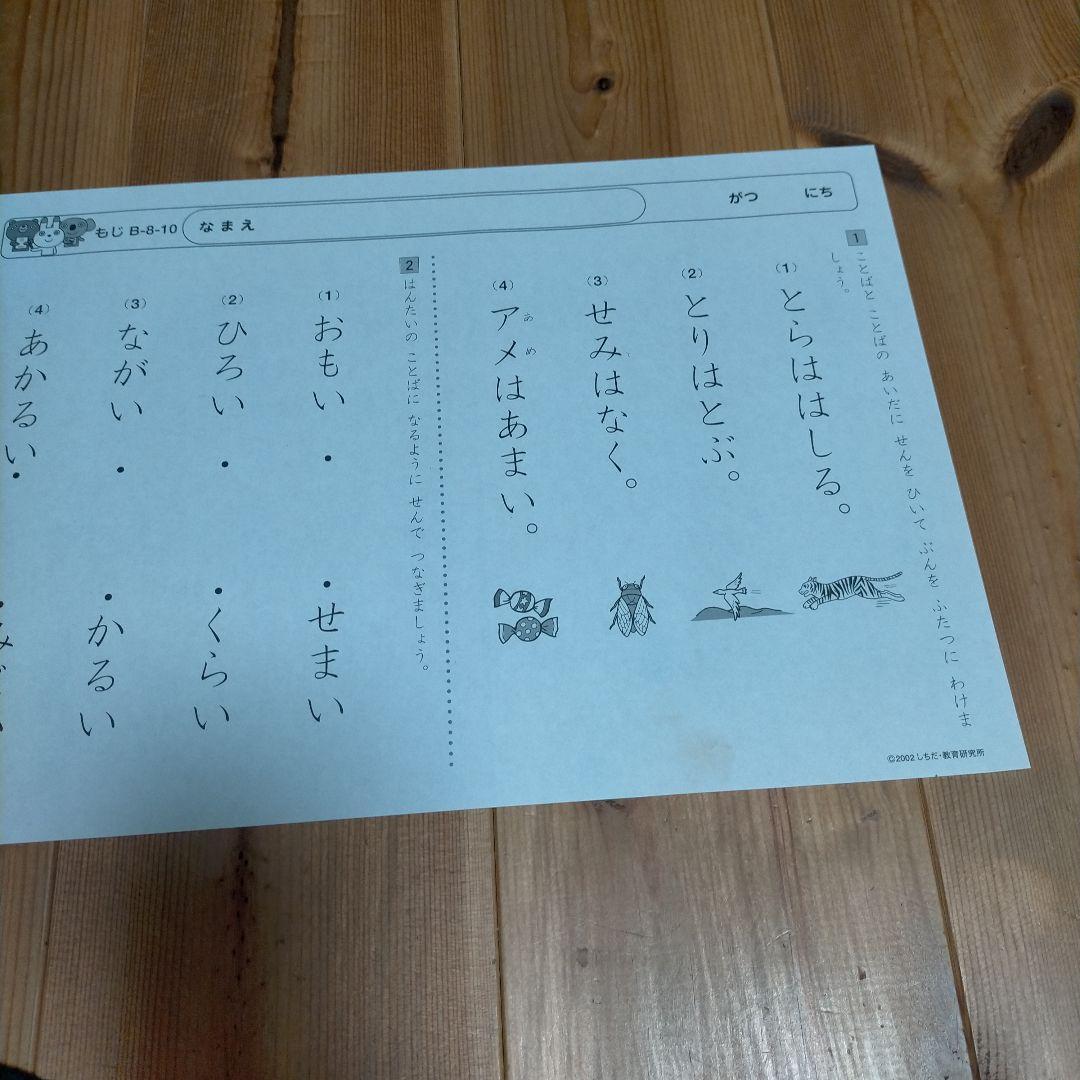 もじ B-8-10
なまえ
がつ にち
1
ことばと ことばの あいだに せんを ひいて ぶんを ふたつに わけま
しょう。
(1)
とらははしる。
(2)
とりはとぶ。
(3)
せみはなく。
(4)
アメはあまい。
あめ
2
はんたいの ことばに なるように せんで つなぎましょう。
(1)
おもい
(2)
ひろい
(3)
ながい
(4)
あかるい
せまい
くらい
かるい
©2002 しちだ・教育研究所